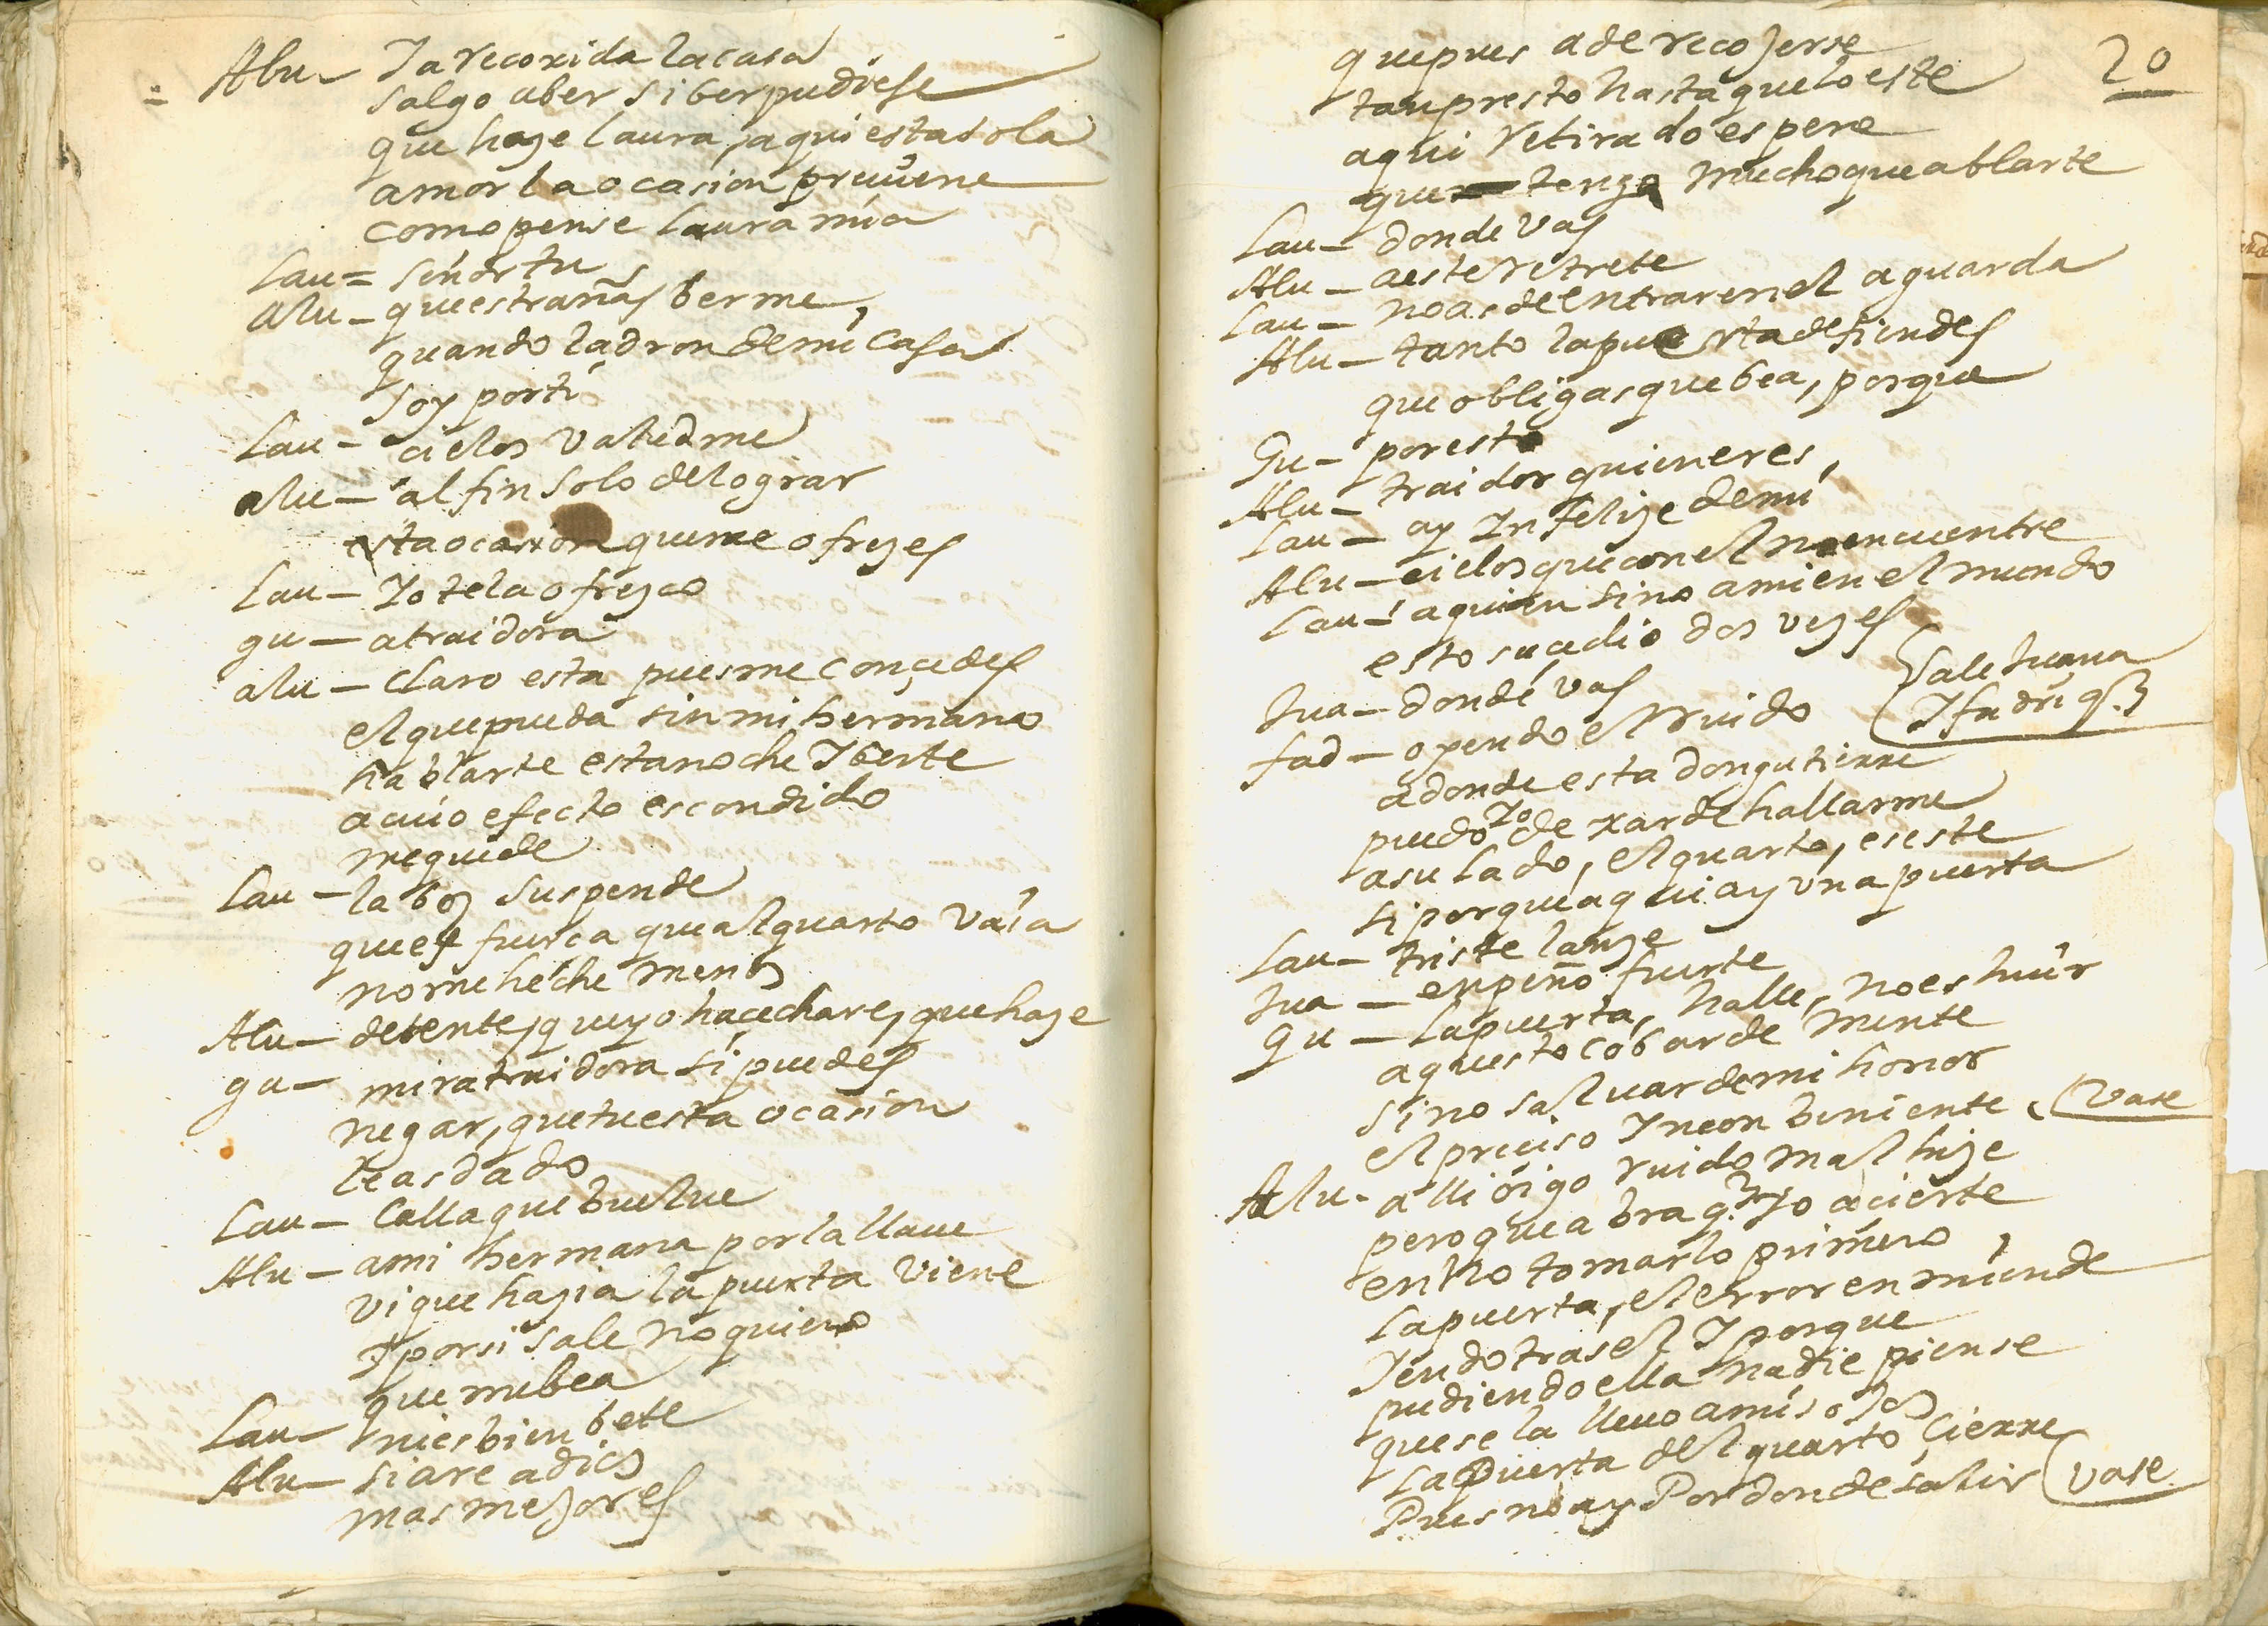 Alu - Ja recoxida la casa
salgo aber si ber pudiese
que haze laura, aqui esta sola
amor la ocasion preuiene
como pense laura mia
Lau = señor tu
alu - que estrañas berme,
quando ladron de mi casa
soy por ti
Lau - cielos valedme
alu - al fin solo de lograr
esta ocasion que me ofrezes
Lau - Yo te la ofrezco
gu - a traidora
alu - claro esta pues me conçedes
el que pueda sin mi hermana
hablarte esta noche Y berte
a cuio efecto escondido
me quede
Lau - la boz suspende
que es fuerça que al quarto vaia
no me heche menos
Alu - detente, que yo hacechare, que haze
gu - mira traidora si puedes
negar, que tu esta ocasion
le as dado
Lau - Calla que buelue
Alu - a mi hermana por la llaue
vi que hazia la puerta viene
y por si sale no quiero
que me bea
Lau - ni es bien bete
Alu - si are a dios
mas mejores
20
que pues a de recojerse
tan presto hasta que lo este
aqui retirado espere
que tengo mucho que ablarte
Lau - donde vas
Alu - a este retrete
Lau - no as de entrar en el aguarda
Alu - tanto la puerta defiendes
que obligas que bea, porque
Gu - por esto
Alu - traidor quien eres,
Lau - ay Infelize de mi
Alu - cielos que con el no encuentre
Lau - a quien sino a mi en el mundo
esto sucedio dos vezes
Sale Juana
Y fadriq.e
Jua - donde vas
fad - oyendo el ruido
adonde esta don gutierre
puedo Yo dexar de hallarme
a su lado, el quarto, es este
si porque aqui ay una puerta
Lau - triste lanze
Jua - enpeño fuerte
gu - la puerta, halle, no es huir
aquesto cobarde mente
sino saluar de mi honor
el preciso Inconbiniente, (vase
Alu - alli oigo ruido mal hize
pero que abra q.n Yo acierte
en no tomarlo primero,
la puerta, el error enmiende
Yendo tras el Y porque
pudiendo ella nadie piense
que se la lleuo a mis ojos
la Puerta del quarto cierre
Pues no ay Por donde salir (vase